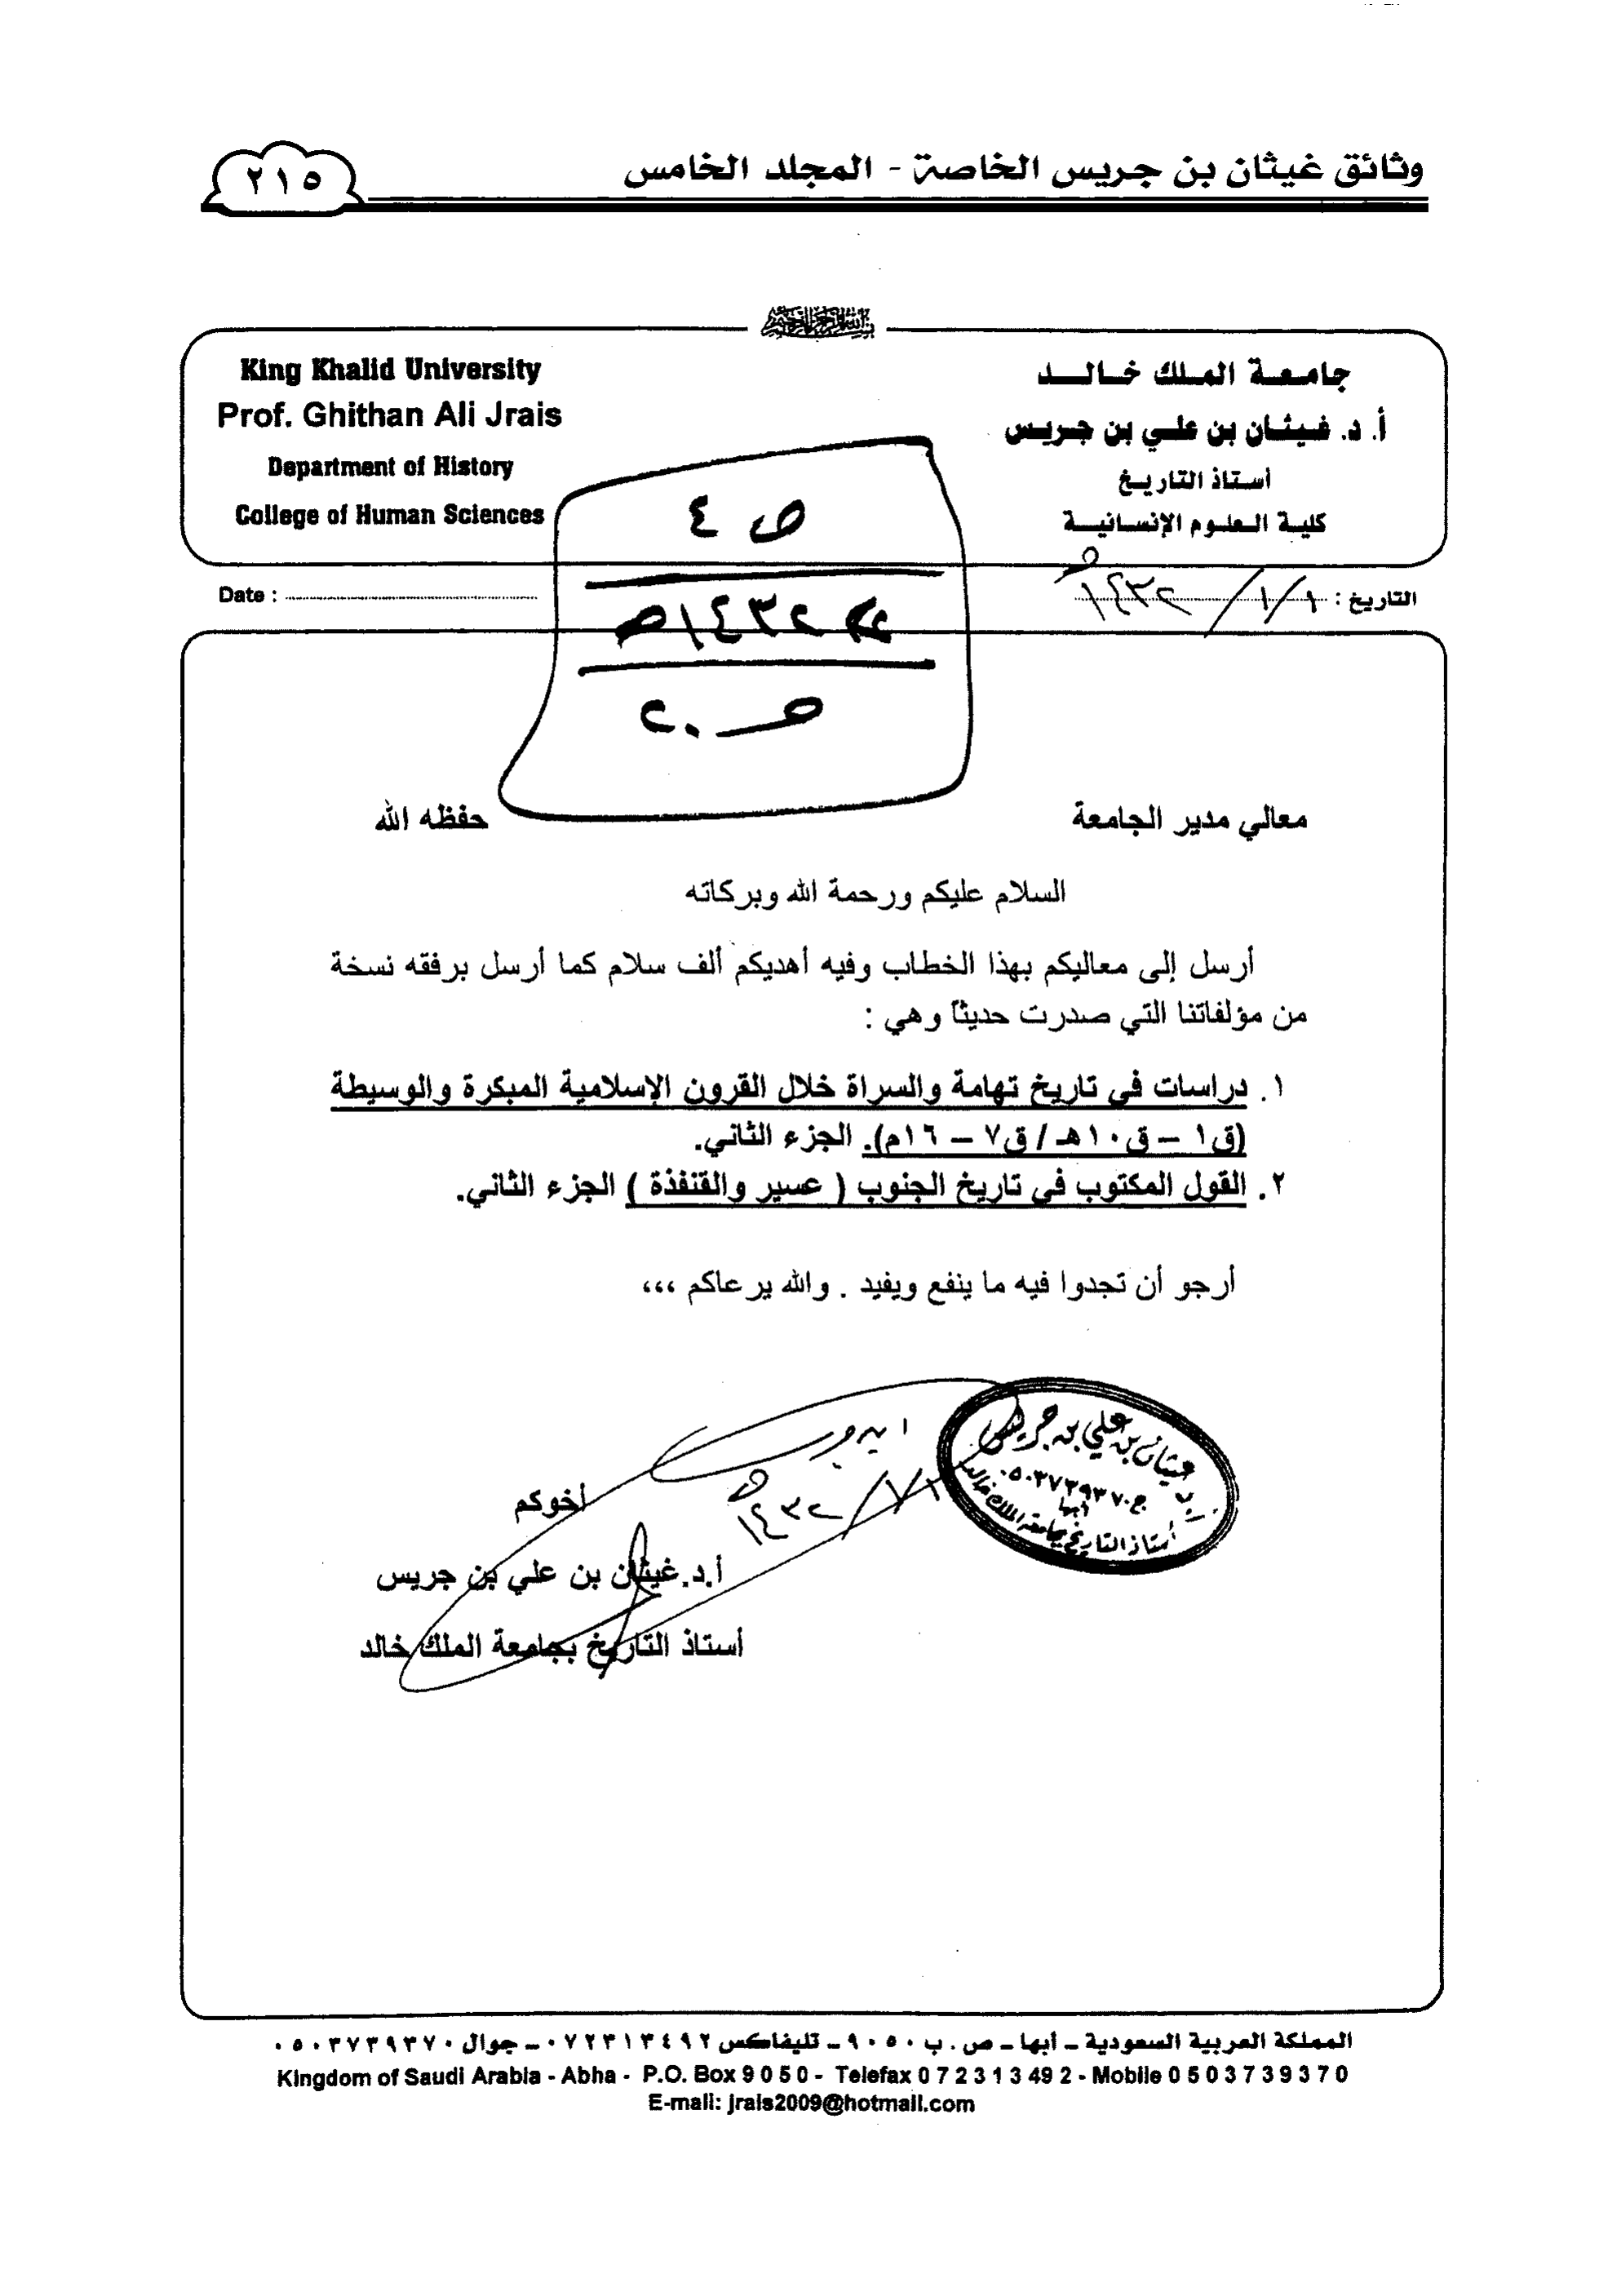 وثائق غيثان بن جريس الخاصة - المجلد الخامس
٢١٥
بسم الله الرحمن الرحيم
جامعة الملك خالد
أ. د. غيثان بن علي بن جريس
أستاذ التاريخ
كلية العلوم الإنسانية
King Khalid University
Prof. Ghithan Ali Jrais
Department of History
College of Human Sciences
ص ٤
١٤٣٢هـ
ص ٢٠
التاريخ : ١/١/١٤٣٢هـ
Date :
معالي مدير الجامعة حفظه الله
السلام عليكم ورحمة الله وبركاته
أرسل إلى معاليكم بهذا الخطاب وفيه أهديكم ألف سلام كما أرسل برفقه نسخة
من مؤلفاتنا التي صدرت حديثاً وهي :
١. دراسات في تاريخ تهامة والسراة خلال القرون الإسلامية المبكرة والوسيطة
(ق١ – ق١٠هـ / ق٧ – ١٦م). الجزء الثاني.
٢. القول المكتوب في تاريخ الجنوب ( عسير والقنفذة ) الجزء الثاني.
أرجو أن تجدوا فيه ما ينفع ويفيد . والله يرعاكم ،،،
غيثان بن علي بن جريس
ج ٠٥٠٣٧٣٩٣٧٠
أبها
أستاذ التاريخ بجامعة الملك خالد
ابن جريس
١/١/١٤٣٢هـ
أخوكم
أ.د.غيثان بن علي بن جريس
أستاذ التاريخ بجامعة الملك خالد
المملكة العربية السعودية – أبها – ص . ب ٩٠٥٠ – تليفاكس ٠٧٢٣١٣٤٩٢ – جوال ٠٥٠٣٧٣٩٣٧٠
Kingdom of Saudi Arabia - Abha - P.O. Box 9 0 5 0 - Telefax 0 7 2 3 1 3 49 2 - Mobile 0 5 0 3 7 3 9 3 7 0
E-mail: jrais2009@hotmail.com